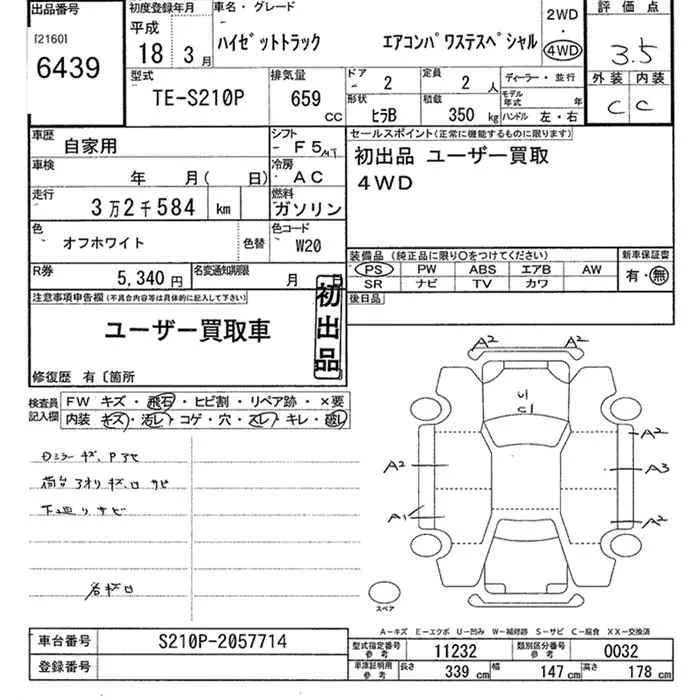 出品番号
[2160]
6439
初度登録年月
平成
18 年 3 月
車名・グレード
ハイゼットトラック エアコンパワステスペシャル
2WD
・
4WD
評価点
3.5
外装 内装
C C
型式
TE-S210P
排気量
659 CC
ドア
2
定員
2 人
ディーラー・並行
モデル年式 年
形状
ヒラB
積載
350 kg
ハンドル 左・右
車歴
自家用
シフト
F5MT
車検
年 月( 日)
冷房
AC
走行
3万2千584 km
燃料
ガソリン
色
オフホワイト
色替
色コード
W20
R券
5,340 円
名変通知期限
月 日
セールスポイント(正常に機能するものに限ります)
初出品 ユーザー買取
4WD
装備品(純正品に限り○をつけてください)
PS PW ABS エアB AW
SR ナビ TV カワ
新車保証書
有・無
後日品
注意事項申告欄(不具合内容等は具体的に記入して下さい)
ユーザー買取車
初出品
修復歴 有〔箇所
検査員記入欄
FW キズ・飛石・ヒビ割・リペア跡・×要
内装 キズ・汚レ・コゲ・穴・スレ・キレ・破レ
荷台アオリ キズ、凹 サビ
下廻リサビ
A2 A2
A2
A1
A2
A3
A2
スペア
A-キズ E-エクボ U-凹み W-補修跡 S-サビ C-腐食 XX-交換済
車台番号
S210P-2057714
登録番号
型式指定番号 参考
11232
類別区分番号 参考
0032
車庫証明用 参考
長さ 339 cm 幅 147 cm 高さ 178 cm